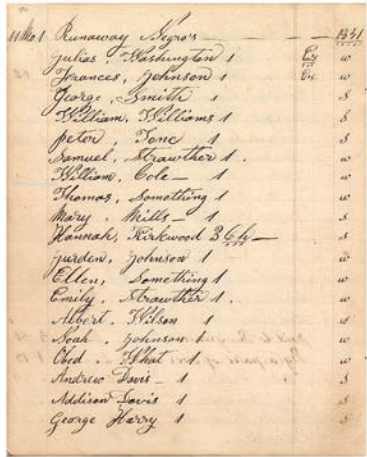 11 Mo 1 Runaway Negro's — 1831
Julias, Washington 1 Ex w
Frances, Johnson 1 Ex w
George, Smith 1 S
William, Williams 1 S
Peter, Tone 1 S
Samuel, Strawther 1. w
William, Cole — 1 w
Thomas, Something 1 w
Mary. Mills — 1 S
Hannah, Kirkwood 3 Ch — S
Jurden, Johnson 1 w
Ellen, Something 1 w
Emily, Strawther 1. w
Albert. Wilson 1 w
Noah. Johnson 1 w
Obed. What 1 w
Andrew Davis — 1 S
Addison Davis 1 S
George Harry 1 S